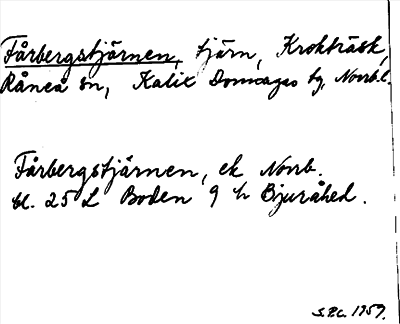 Fårbergstjärnen, tjärn, Krokträsk,
Råneå sn, Kalix Domsagas tg, Norrb.l.
Fårbergstjärnen, ek Norrb.
bl. 25 L Boden 9 h Bjuråhed.
S.P.C. 1959.